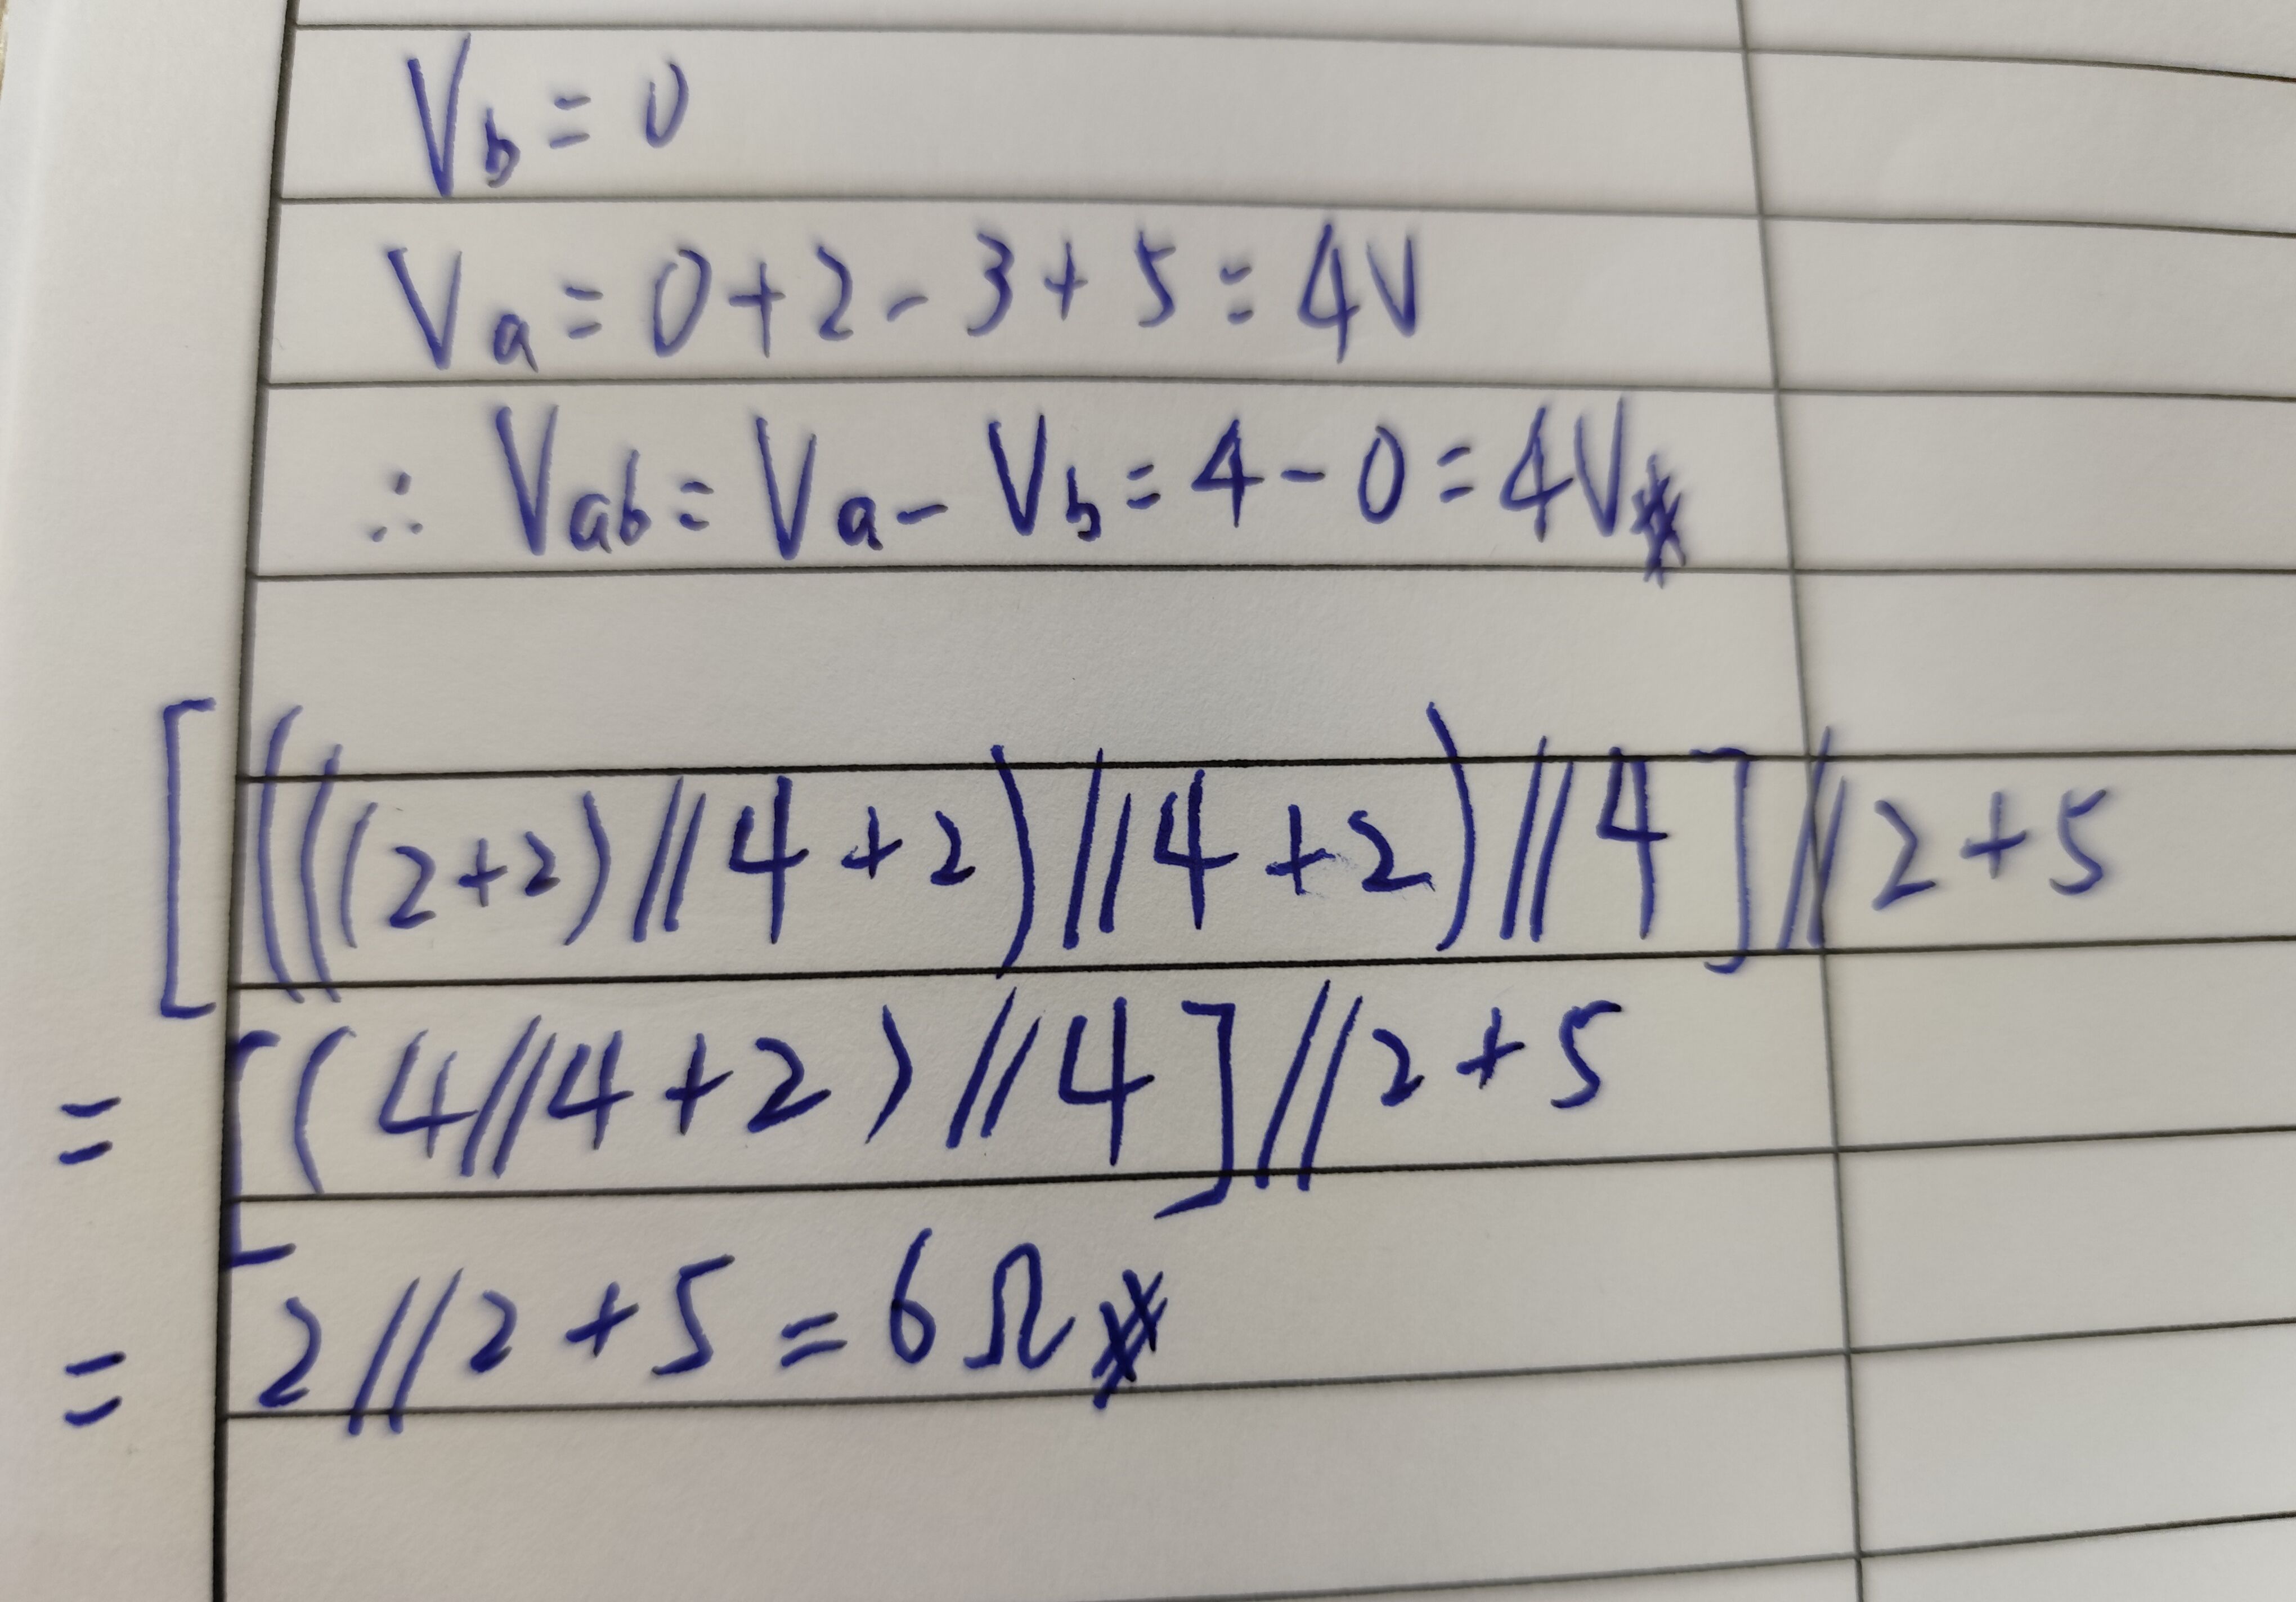 Vb = 0
Va = 0 + 2 - 3 + 5 = 4V
∴ Vab = Va - Vb = 4 - 0 = 4V※
[(((2+2)//4+2)//4+2)//4]//2+5
= [(4//4+2)//4]//2+5
= 2//2+5 = 6Ω※